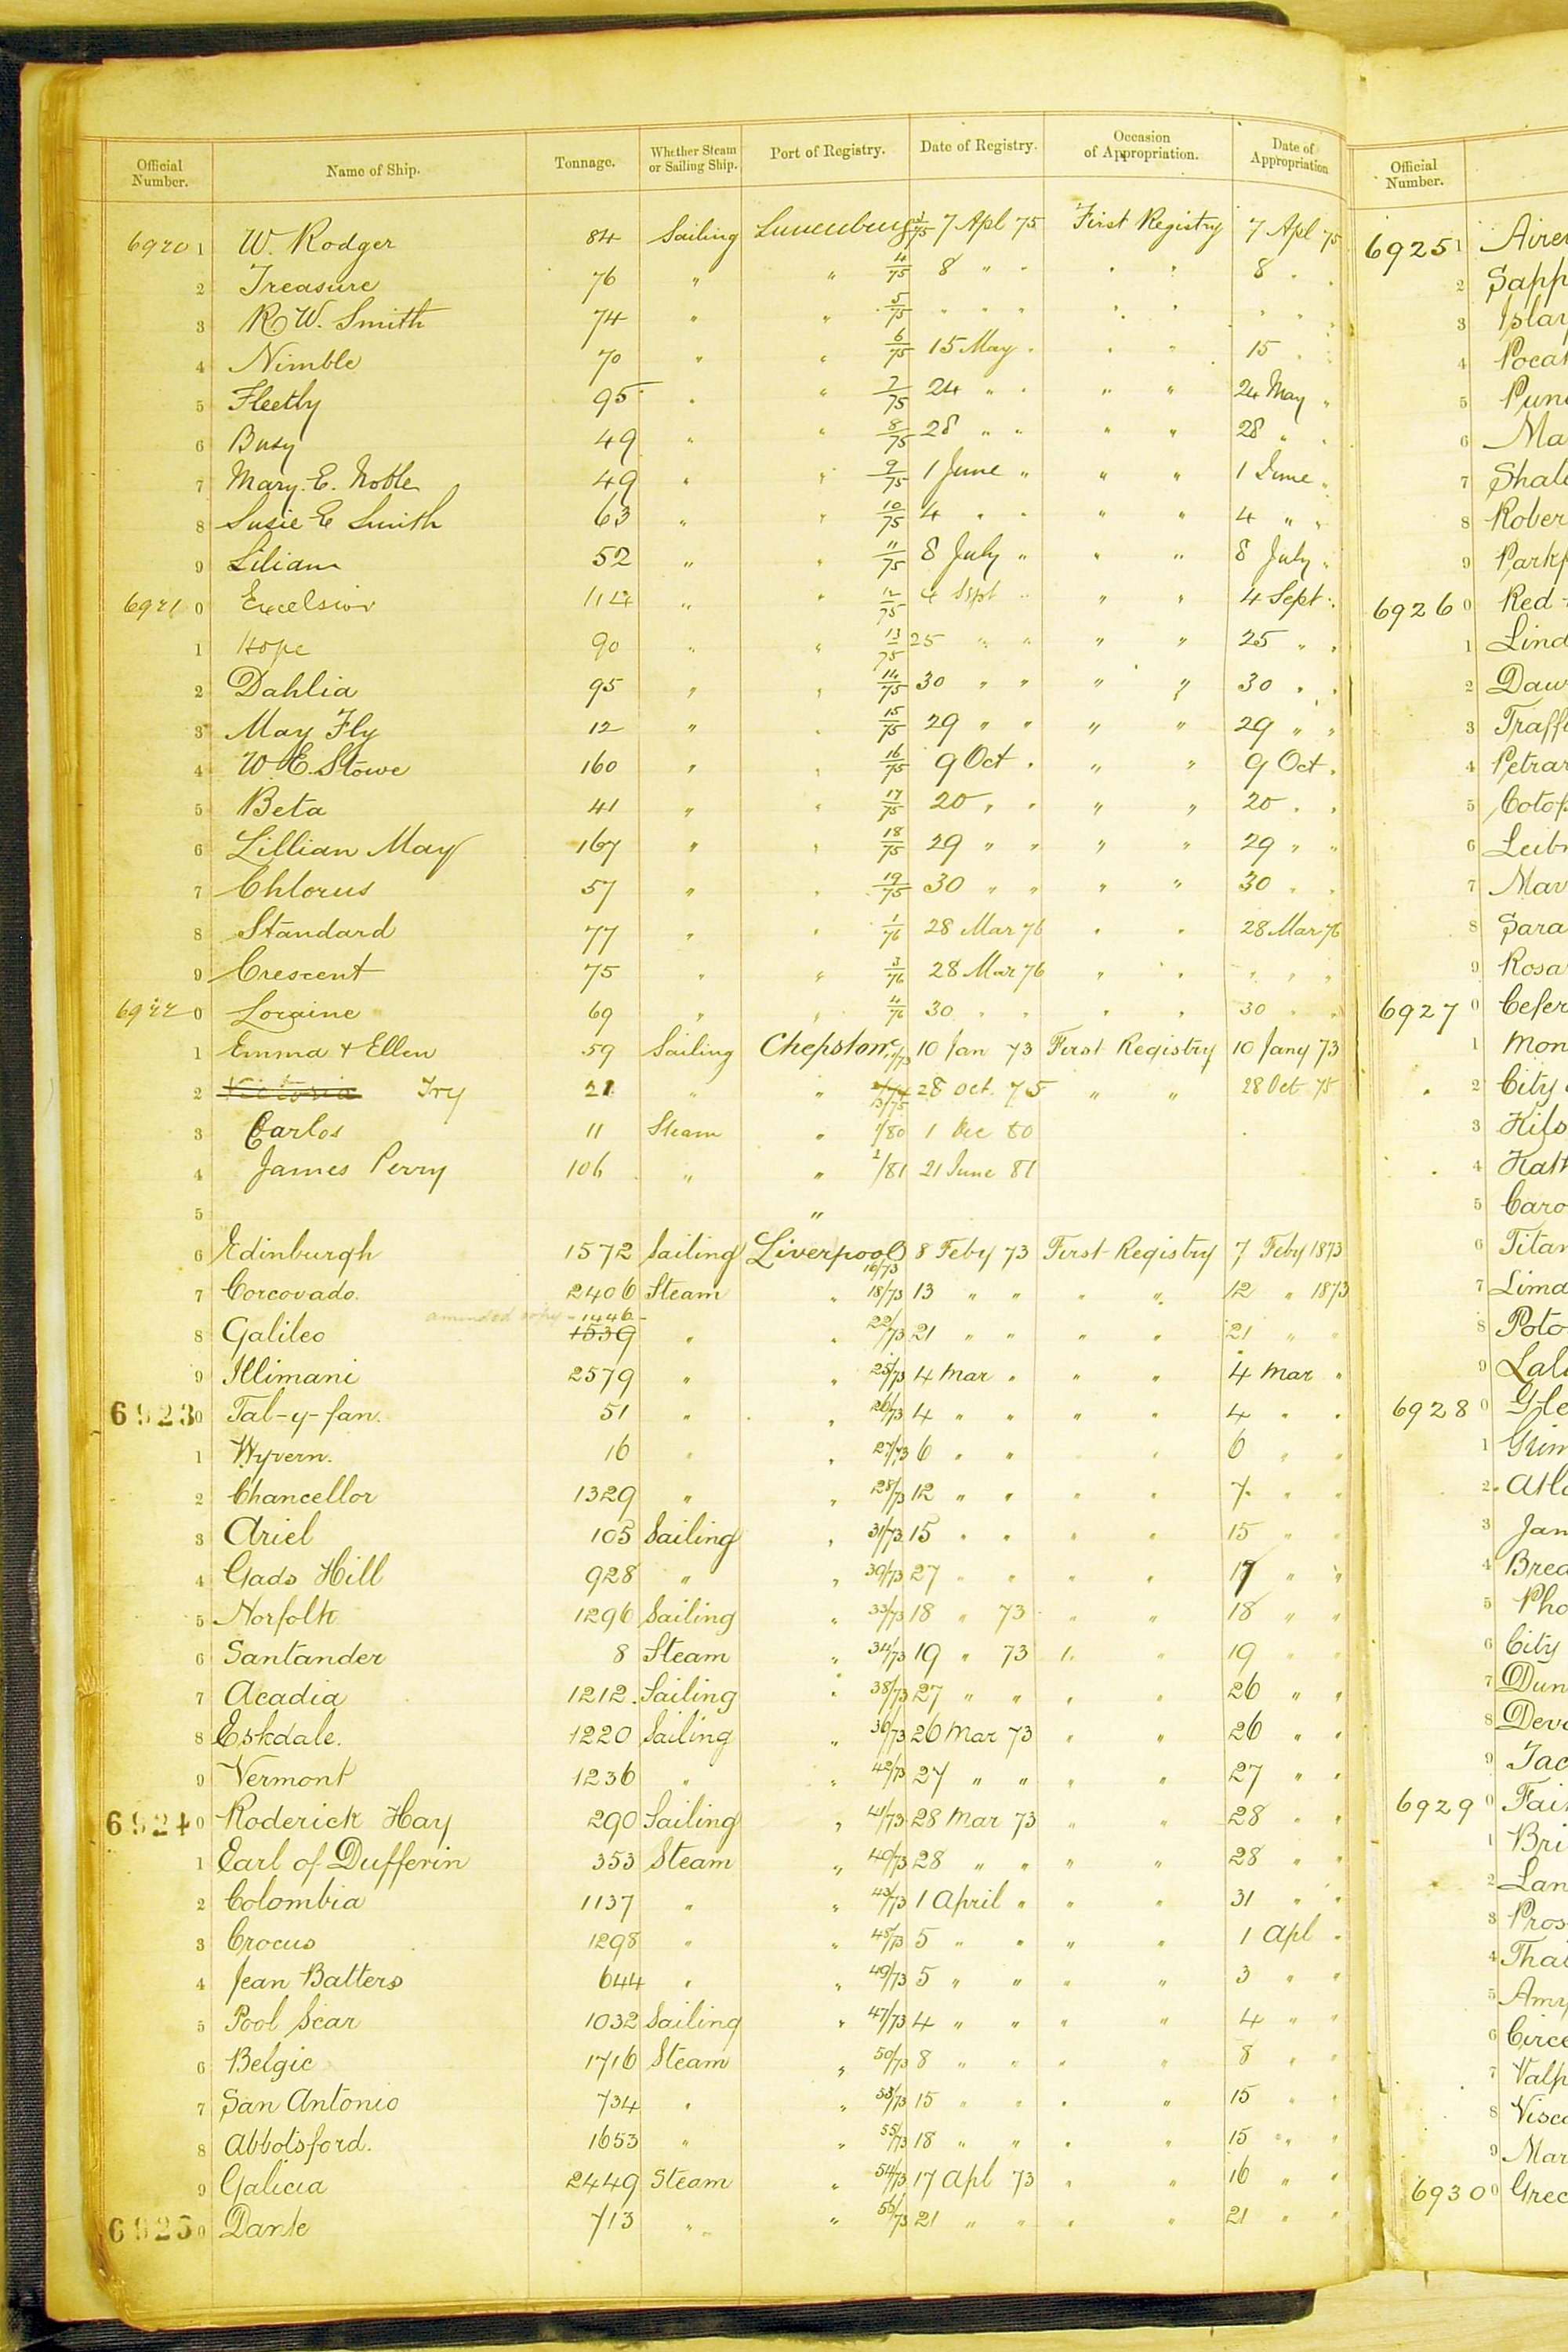 Official Number. Name of Ship. Tonnage. Whether Steam or Sailing Ship. Port of Registry. Date of Registry. Occasion of Appropriation. Date of Appropriation Official Number.
6920 1 W. Rodger 84 Sailing Lunenburg 3/75 7 Apl 75 First Registry 7 Apl 75
2 Treasure 76 " " 4/75 8 " " " " 8 " "
3 R W. Smith 74 " " 5/75 " " " " " " " "
4 Nimble 70 " " 6/75 15 May " " " 15 " "
5 Fleetly 95 " " 7/75 24 " " " " 24 May "
6 Busy 49 " " 8/75 28 " " " " 28 " "
7 Mary. E. Noble 49 " " 9/75 1 June " " " 1 June "
8 Susie E Smith 63 " " 10/75 4 " " " " 4 " "
9 Lilian 52 " " 11/75 8 July " " " 8 July "
6921 0 Excelsior 114 " " 12/75 4 Sept " " " 4 Sept "
1 Hope 90 " " 13/75 25 " " " " 25 " "
2 Dahlia 95 " " 14/75 30 " " " " 30 " "
3 May Fly 12 " " 15/75 29 " " " " 29 " "
4 W E. Stowe 160 " " 16/75 9 Oct " " " 9 Oct "
5 Beta 41 " " 17/75 20 " " " " 20 " "
6 Lillian May 167 " " 18/75 29 " " " " 29 " "
7 Chlorus 57 " " 19/75 30 " " " " 30 " "
8 Standard 77 " " 1/76 28 Mar 76 " " 28 Mar 76
9 Crescent 75 " " 3/76 28 Mar 76 " " " " "
6922 0 Loraine 69 " " 4/76 30 " " " " 30 " "
1 Emma & Ellen 59 Sailing Chepstow 10 Jan 73 First Registry 10 Jany 73
2 Victoria Ivy 21 " " 13/75 28 Oct. 75 " " 28 Oct 75
3 Carlos 11 Steam " 1/80 1 Dec 80
4 James Perry 106 " " 2/81 21 June 81
5 "
6 Edinburgh 1572 Sailing Liverpool 16/73 8 Feby 73 First Registry 7 Feby 1873
7 Corcovado. 2406 Steam " 18/73 13 " " " " 12 " 1873
amended 1446
8 Galileo 1539 " " 22/73 21 " " " " 21 " "
9 Illimani 2579 " " 25/73 4 Mar " " " 4 Mar "
6923 0 Tal-y-fan. 51 " " 26/73 4 " " " " 4 " "
1 Wyvern. 16 " " 27/73 6 " " " " 6 " "
2 Chancellor 1329 " " 28/73 12 " " " " 7 " "
3 Ariel 105 Sailing " 31/73 15 " " " " 15 " "
4 Gads Hill 928 " " 39/73 27 " " " " 17 " "
5 Norfolk 1296 Sailing " 33/73 18 " 73 " " 18 " "
6 Santander 8 Steam " 34/73 19 " 73 " " 19 " "
7 Acadia 1212. Sailing " 38/73 27 " " " " 26 " "
8 Eskdale. 1220 Sailing " 36/73 26 Mar 73 " " 26 " "
9 Vermont 1236 " " 42/73 27 " " " " 27 " "
6924 0 Roderick Hay 290 Sailing " 41/73 28 Mar 73 " " 28 " "
1 Earl of Dufferin 353 Steam " 40/73 28 " " " " 28 " "
2 Colombia 1137 " " 43/73 1 April " " " 31 " "
3 Crocus 1298 " " 48/73 5 " " " " 1 Apl "
4 Jean Batters 644 " " 49/73 5 " " " " 3 " "
5 Pool Scar 1032 Sailing " 47/73 4 " " " " 4 " "
6 Belgic 1716 Steam " 50/73 8 " " " " 8 " "
7 San Antonio 734 " " 53/73 15 " " " " 15 " "
8 Abbotsford. 1653 " " 55/73 18 " " " " 15 " "
9 Galicia 2449 Steam " 54/73 17 Apl 73 " " 16 " "
6925 0 Dante 713 " " 56/73 21 " " " " 21 " "
6925 1
2
3
4
5
6
7
8
9
6926 0 Red
1
2
3
4
5
6
7
8
9
6927 0
1
2 City
3
4
5
6
7
8
9
6928 0
1
2
3
4
5
6 City
7
8
9
6929 0
1
2
3
4
5
6
7
8
9
6930 0